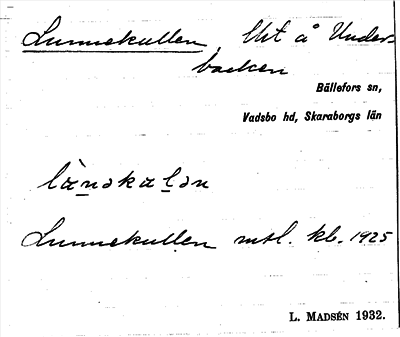 Lunnekullen, lht å Under-
backen
Bällefors sn,
Vadsbo hd, Skaraborgs län
Lunnekullen mtl. kb. 1925
L. MADSÉN 1932.